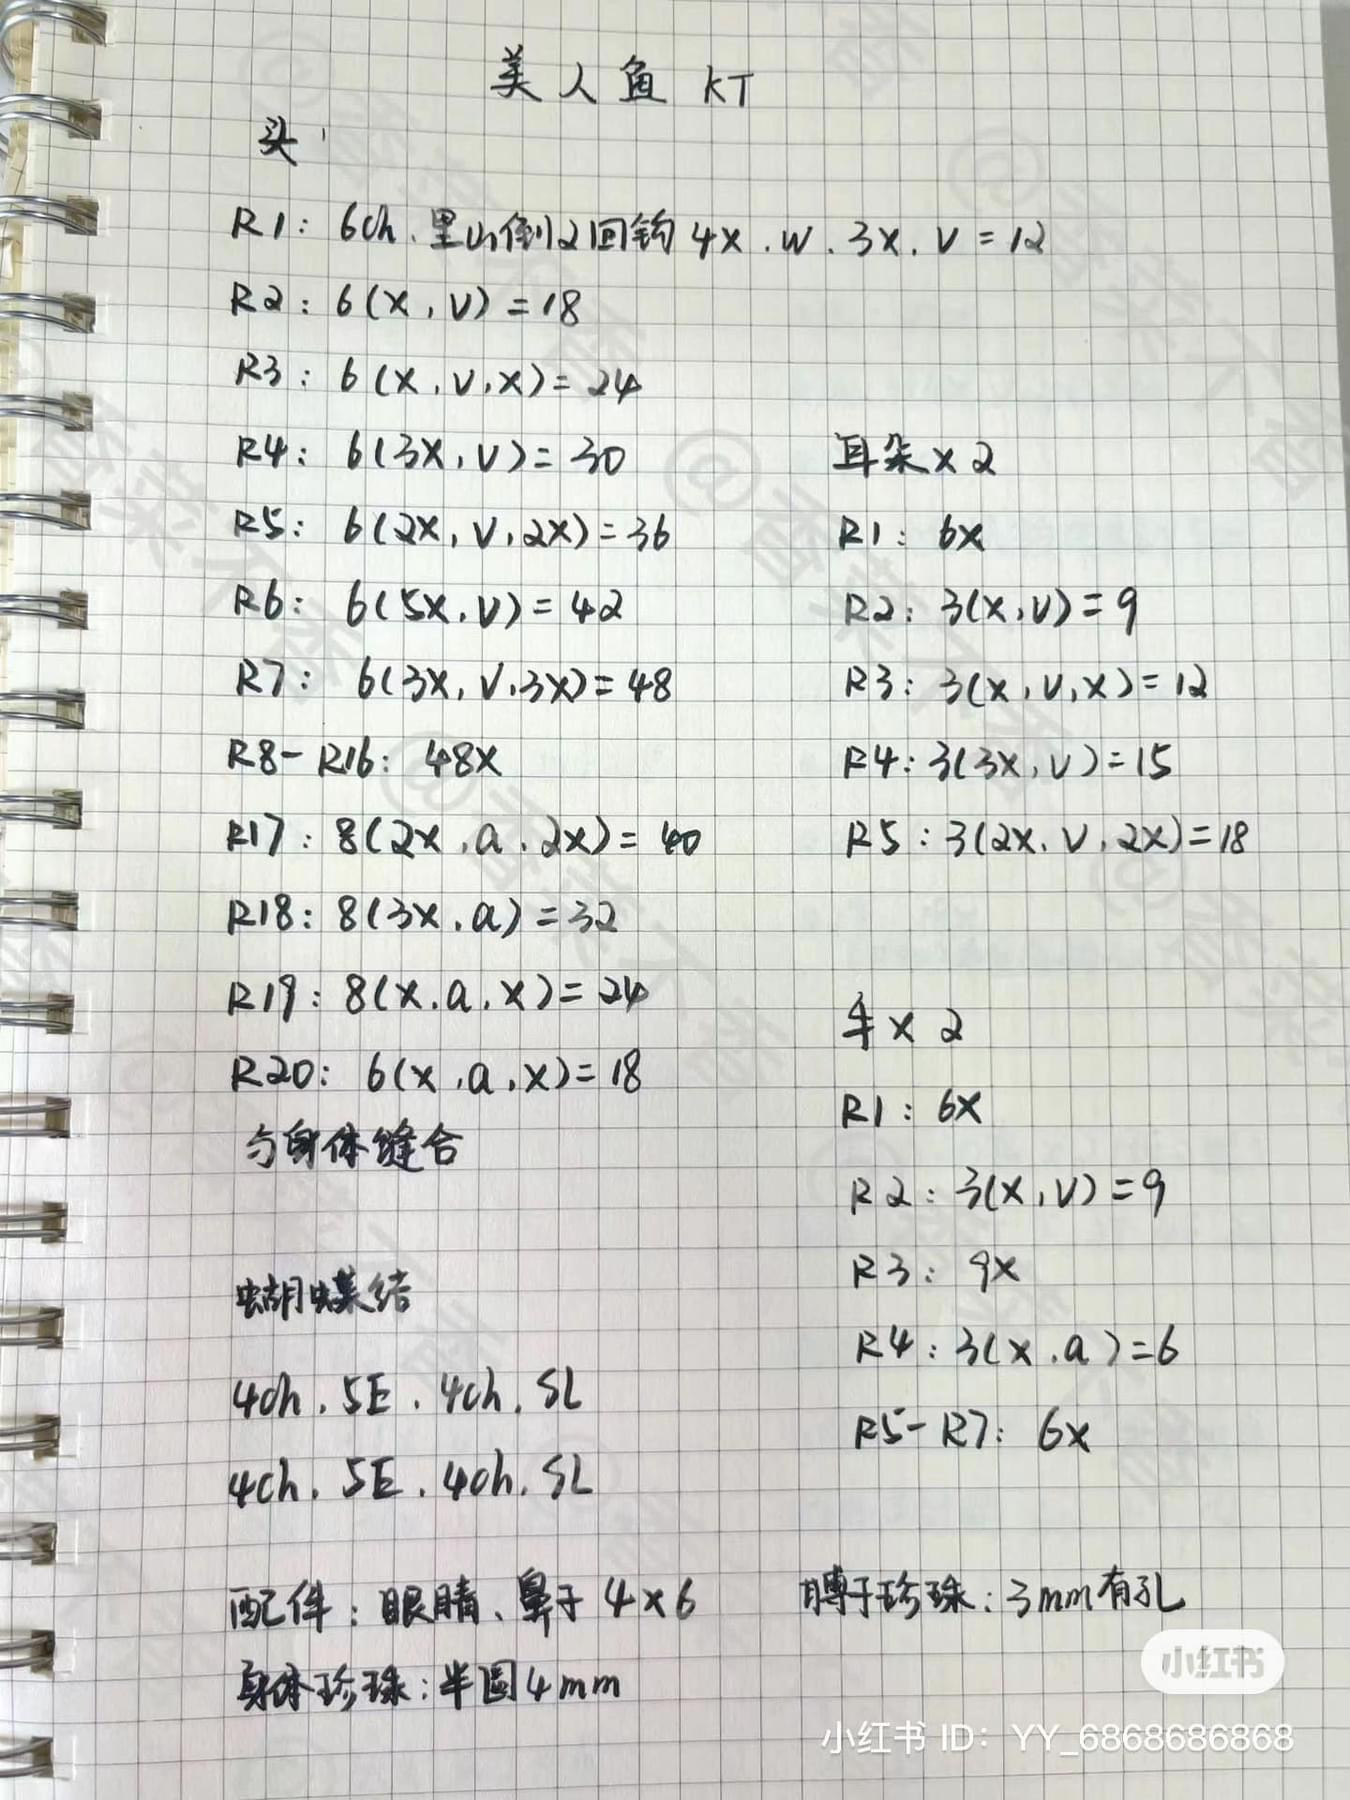 美人鱼 KT
头
R1: 6ch.里山倒2回钩4X.W.3X.V=12
R2: 6(X,V)=18
R3: 6(X,V,X)=24
R4: 6(3X,V)=30
R5: 6(2X,V,2X)=36
R6: 6(5X,V)=42
R7: 6(3X,V,3X)=48
R8-R16: 48X
R17: 8(2X,a,2X)=40
R18: 8(3X,a)=32
R19: 8(X,a,X)=24
R20: 6(X,a,X)=18
与身体缝合
蝴蝶结
4ch.5E.4ch.SL
4ch.5E.4ch.SL
配件:眼睛、鼻子4X6
身体珍珠:半圆4mm
耳朵X2
R1: 6X
R2: 3(X,V)=9
R3: 3(X,V,X)=12
R4: 3(3X,V)=15
R5: 3(2X,V,2X)=18
手X2
R1: 6X
R2: 3(X,V)=9
R3: 9X
R4: 3(X,a)=6
R5-R7: 6X
脖子珍珠:3mm有孔
小红书
小红书 ID: YY_6868686868
@香菜不香